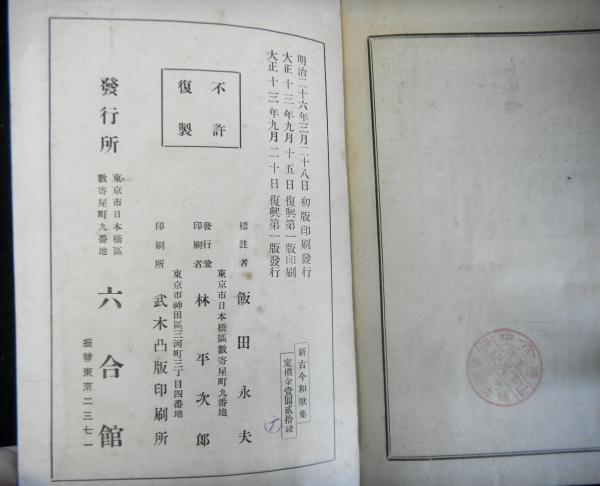 明治二十六年三月二十八日初版印刷發行
大正十三年九月十五日復興第一版印刷
大正十三年九月二十日復興第一版發行
不許
復製
新古今和歌集
定價金壹圓貳拾錢
標註者 飯田永夫
東京市日本橋區數寄屋町九番地
發行兼
印刷者 林平次郎
東京市神田區三河町三丁目四番地
印刷所 武木凸版印刷所
東京市日本橋區
數寄屋町九番地
發行所 六合館
振替東京二三七一